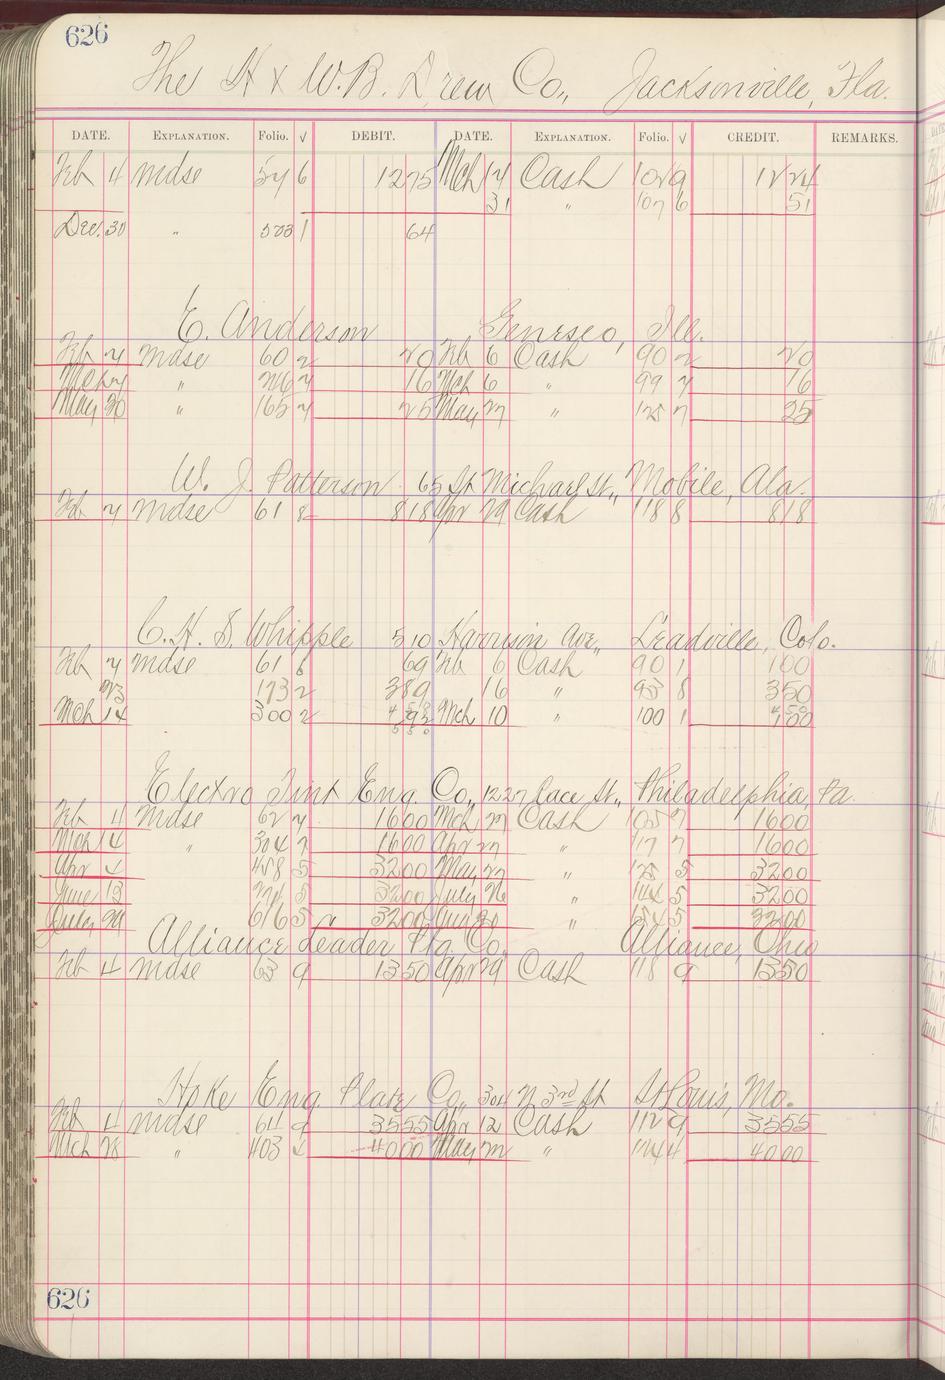 626
The H & W.B. Drew Co., Jacksonville, Fla.
DATE. EXPLANATION. Folio. √ DEBIT. DATE. EXPLANATION. Folio. √ CREDIT. REMARKS.
Feb 4 Mdse 54 6 1275 Mch 14 Cash 102 9 1224
31 " 107 6 51
Dec. 30 " 503 1 64
E. Anderson Geneseo, Ill.
Feb 4 Mdse 60 2 20 Feb 6 Cash 90 2 20
Mch " 4 16 Mch 6 " 99 4 16
May 20 " 165 4 25 May 27 " 125 7 25
W. J. Patterson 65 St Michael St., Mobile, Ala.
Feb 4 Mdse 61 8 818 Apr 29 Cash 118 8 818
C.H.S. Whipple 510 Harrison Ave., Leadville, Colo.
Feb 4 Mdse 61 8 69 Feb 6 Cash 90 1 100
23 173 2 389 16 " 95 8 350
Mch 14 300 2 492 Mch 10 " 100 1 500
Electro Tint Eng. Co., 1227 Race St., Philadelphia, Pa.
Feb 4 Mdse 62 7 1600 Mch 27 Cash 105 7 1600
Mch 4 " 304 7 1600 Apr 27 " 117 7 1600
Apr 4 458 5 3200 May 27 " 125 5 3200
June 13 5 3200 July 26 " 144 5 3200
July 29 616 5 3200 Aug 30 " 154 5 3200
Alliance Leader Ptg. Co., Alliance, Ohio
Feb 4 Mdse 63 9 1350 Apr 29 Cash 118 9 1350
Hoke Eng. Plate Co., 304 N 3rd St St Louis, Mo.
Feb 4 Mdse 64 9 3555 Apr 12 Cash 112 9 3555
Mch 28 " 403 4 4000 May 27 " 124 4 4000
626